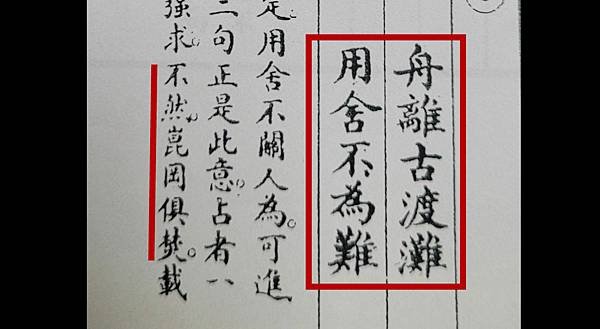 舟離古渡灘
用舍不為難
用舍不關人為。可進
二句正是此意。占者
强求。不然崑岡俱焚。載